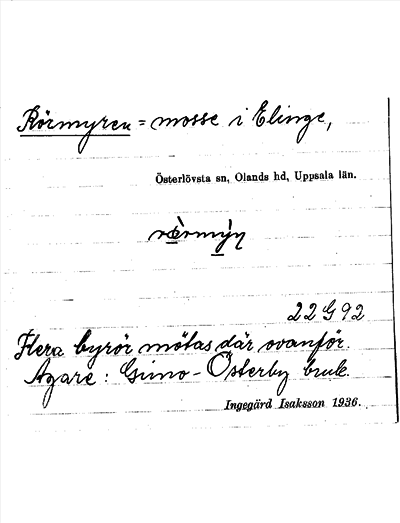 Rörmyren = mosse i Elinge,
Österlövsta sn, Olands hd, Uppsala län.
rœ̀rmýn
22 G 92
Flera byrör mötas där ovanför.
Ägare: Gimo-Österby bruk.
Ingegärd Isaksson 1936.